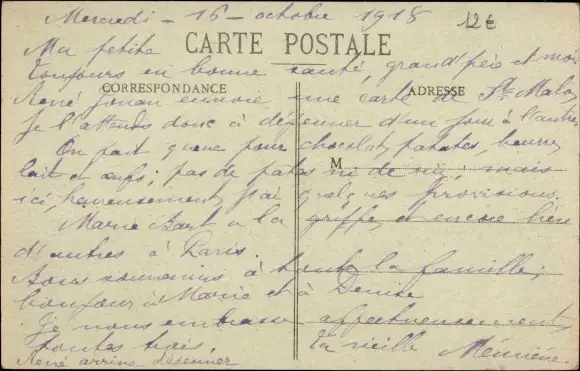 Mercredi - 16 - octobre 1918
12€
Ma petite
CARTE POSTALE
Toujours en bonne santé, grand'père et moi
CORRESPONDANCE
ADRESSE
René Jouan envoie une carte de St Malo,
Je l'attends donc à déjeuner d'un jour à l'autre
On fait queue pour chocolat, patates, beurre
M
lait et œufs; pas de pâtes ni de riz; mais
ici, heureusement j'ai quelques provisions.
Marie a la grippe, et encore bien
d'autres à Paris.
Bons souvenirs à toute la famille;
bonjour à Marie et à Denise
Je vous embrasse affectueusement
toutes trois. Ta vieille
René arrive déjeuner